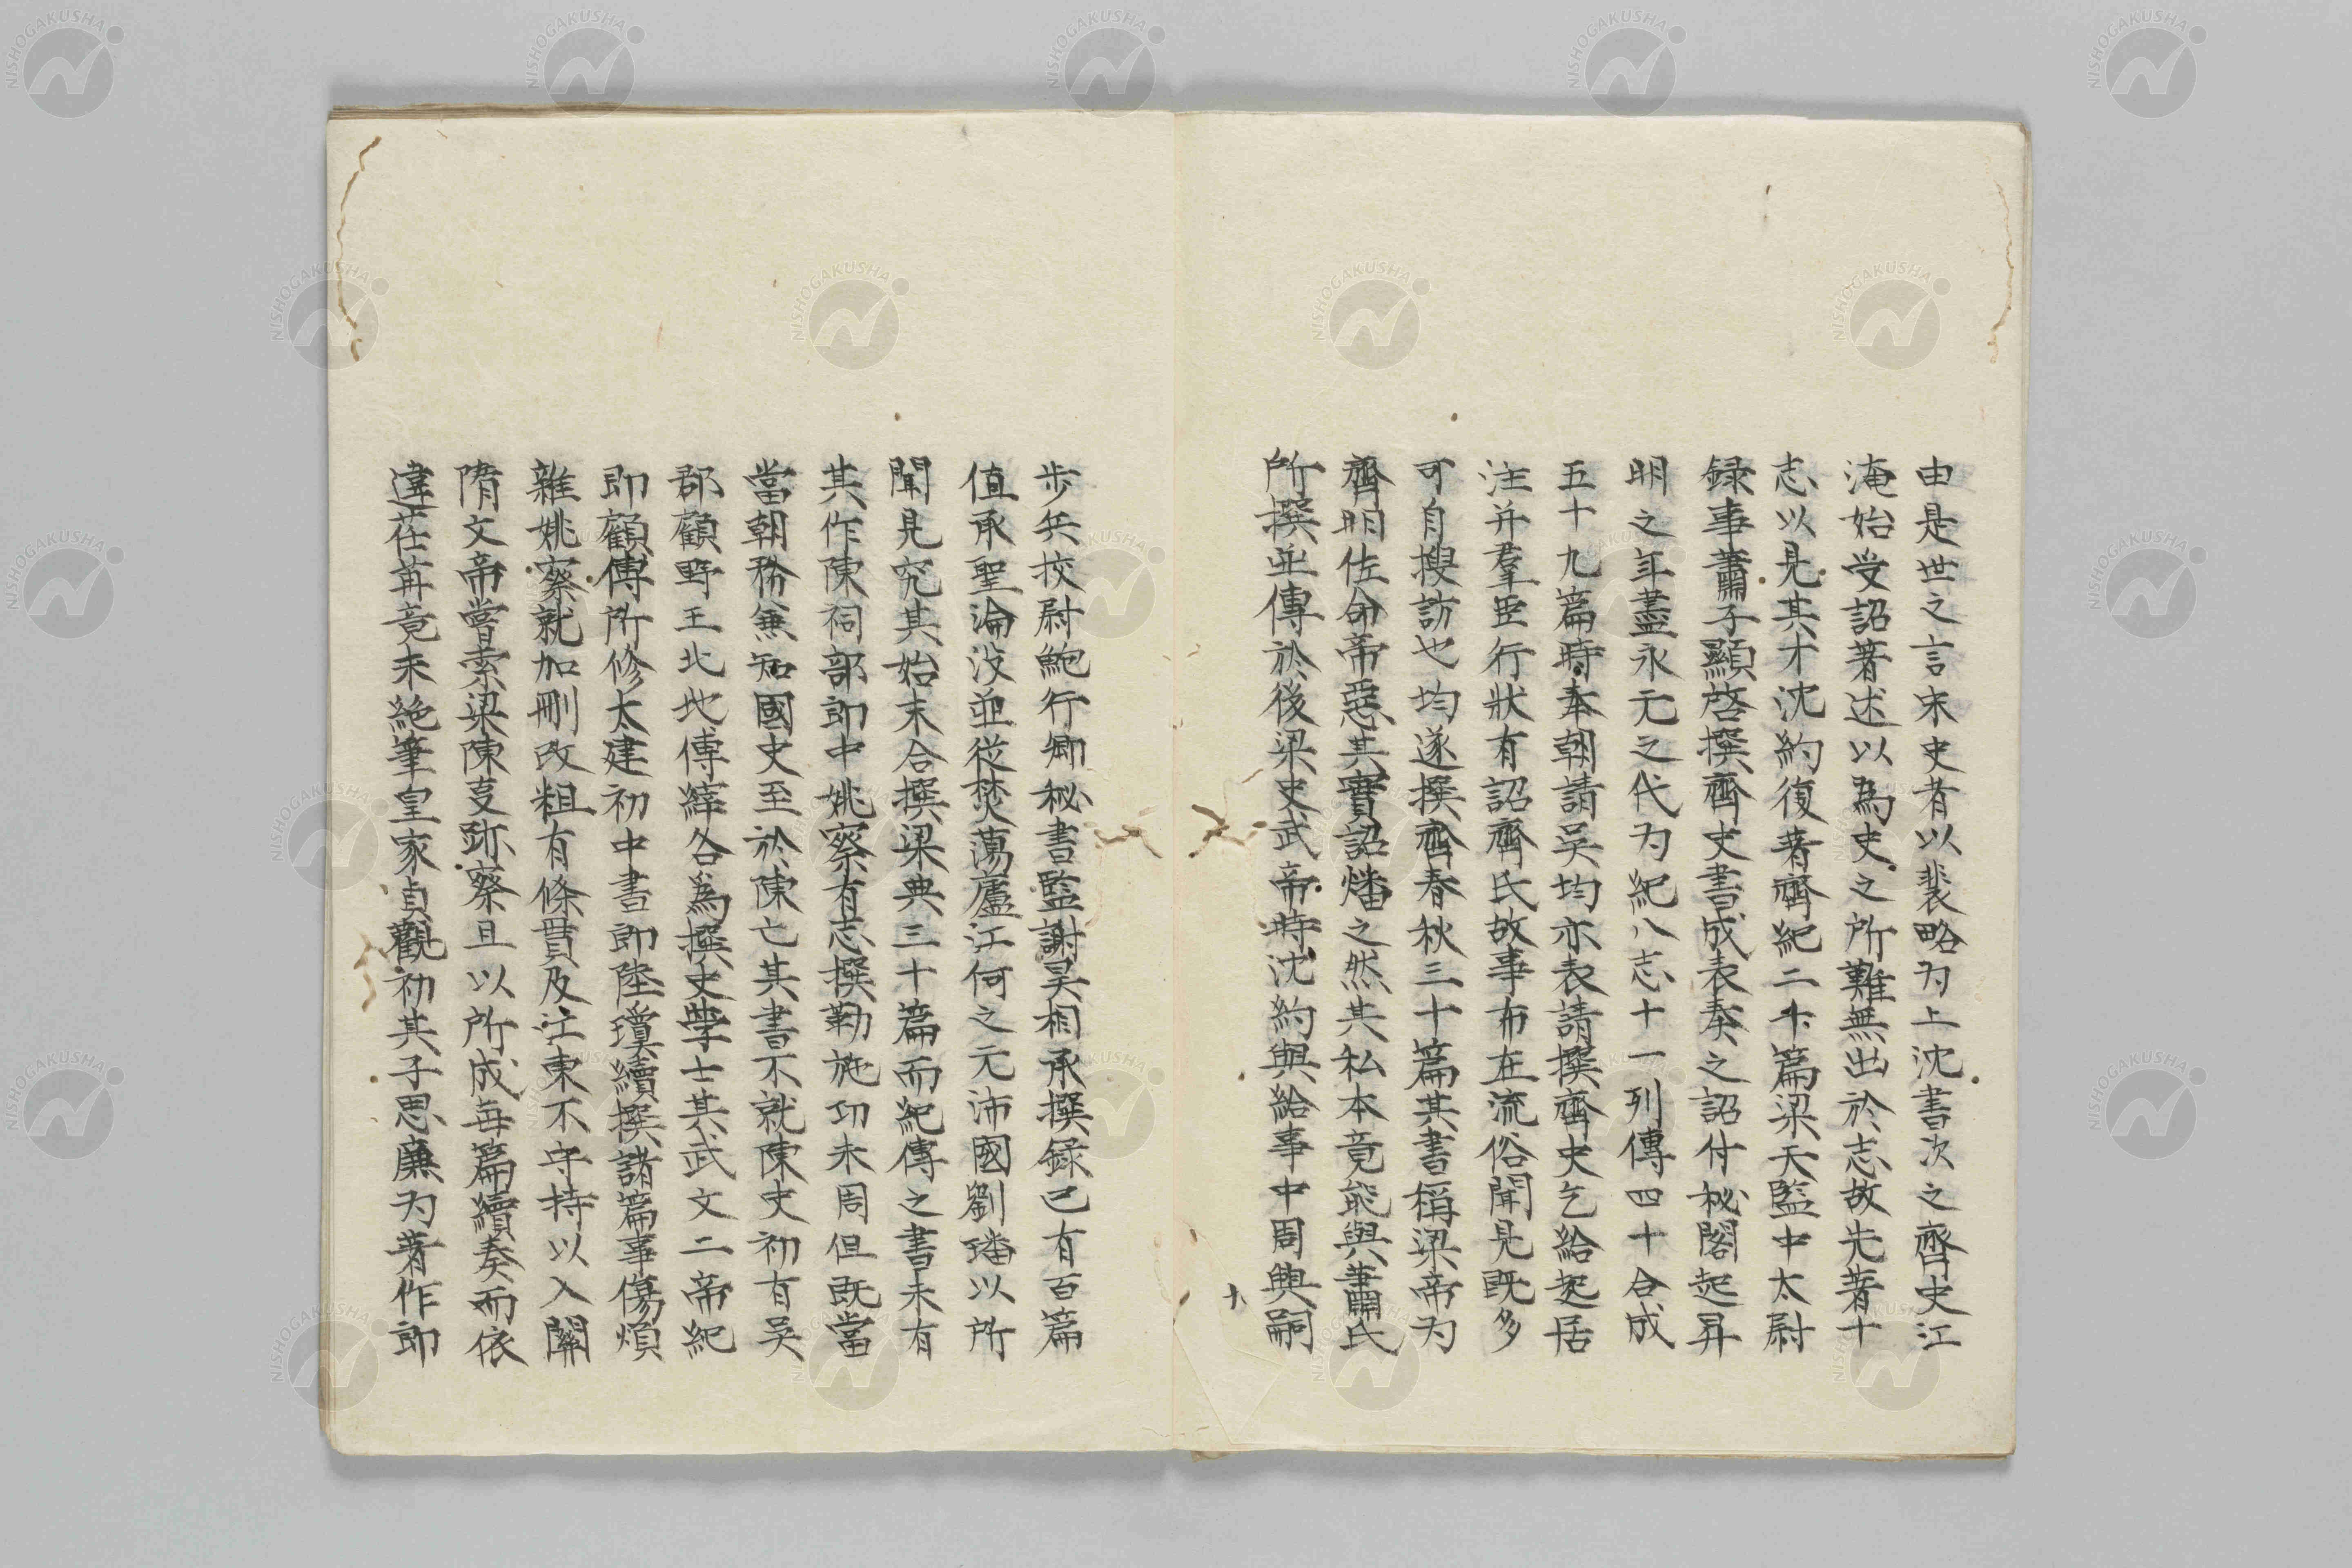 由是世之言宋史者以裴略为上沈書次之齊史江
淹始受詔著述以為史之所難無出於志故先著十
志以見其才沈約復著齊紀二十篇梁天監中太尉
録事蕭子顯啓撰齊史書成表奏之詔付秘閣起昇
明之年盡永元之代为紀八志十一列傳四十合成
五十九篇時奉朝請吳均亦表請撰齊史乞給起居
注并羣臣行狀有詔齊氏故事布在流俗聞見既多
可自搜訪也均遂撰齊春秋三十篇其書稱梁帝为
齊明佐命帝惡其實詔燔之然其私本竟能與蕭氏
所撰並傳於後梁史武帝時沈約與給事中周興嗣
十
步兵校尉鮑行卿秘書監謝昊相承撰録已有百篇
值承聖淪沒並從焚蕩廬江何之元沛國劉璠以所
聞見究其始末合撰梁典三十篇而紀傳之書未有
其作陳祠部郎中姚察有志撰勒施功未周但既當
當朝務兼知國史至於陳亡其書不就陳史初有吳
郡顧野王北地傅縡各為撰史學士其武文二帝紀
即顧傅所修太建初中書郎陸瓊續撰諸篇事傷煩
雜姚察就加刪改粗有條貫及江東不守持以入關
隋文帝嘗索梁陳事跡察具以所成每篇續奏而依
違荏苒竟未絶筆皇家貞觀初其子思廉为著作郎
NISHOGAKUSHA